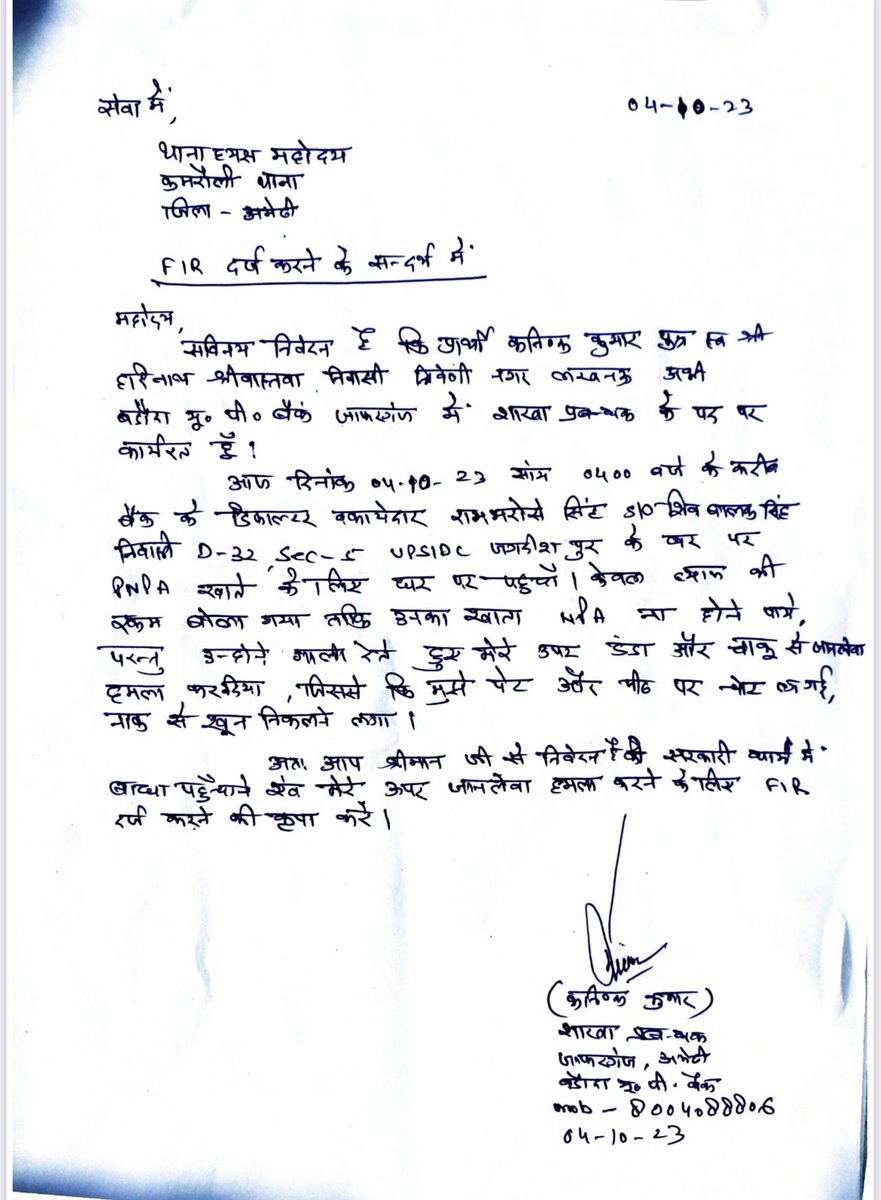 सेवा में,
04-10-23
थानाध्यक्ष महोदय
कमरौली थाना
जिला - अमेठी
FIR दर्ज करने के सन्दर्भ में
महोदय,
सविनय निवेदन है कि प्रार्थी कनिष्क कुमार पुत्र स्व श्री
हरिनाथ श्रीवास्तवा निवासी त्रिवेणी नगर लखनऊ अभी
बडौदा यू० पी० बैंक जाफरगंज में शाखा प्रबन्धक के पद पर
कार्यरत हूँ।
आज दिनांक 04-10-23 सांय 0400 बजे के करीब
बैंक के डिफाल्टर बकायेदार रामभरोसे सिंह S/O शिव बालक सिंह
निवासी D-32, Sec-5 UPSIDC जगदीशपुर के घर पर
PNPA खाते के लिए घर पर पहुचाँ। केवल ब्याज की
रकम बोला गया ताकि उनका खाता NPA ना होने पाये,
परन्तु उन्होने गाली देते हुए मेरे उपर डंडा और चाकू से जानलेवा
हमला कर दिया, जिससे कि मुझे पेट और पीठ पर चोट लग गई,
नाक से खून निकलने लगा।
अतः आप श्रीमान जी से निवेदन है की सरकारी कार्य में
बाध्धा पहुँचाने एंव मेरे उपर जानलेवा हमला करने के लिए FIR
दर्ज करने की कृपा करें।
(कनिष्क कुमार)
शाखा प्रबन्धक
जाफरगंज, अमेठी
बडौदा यू० पी० बैंक
mob - 8004088806
04-10-23